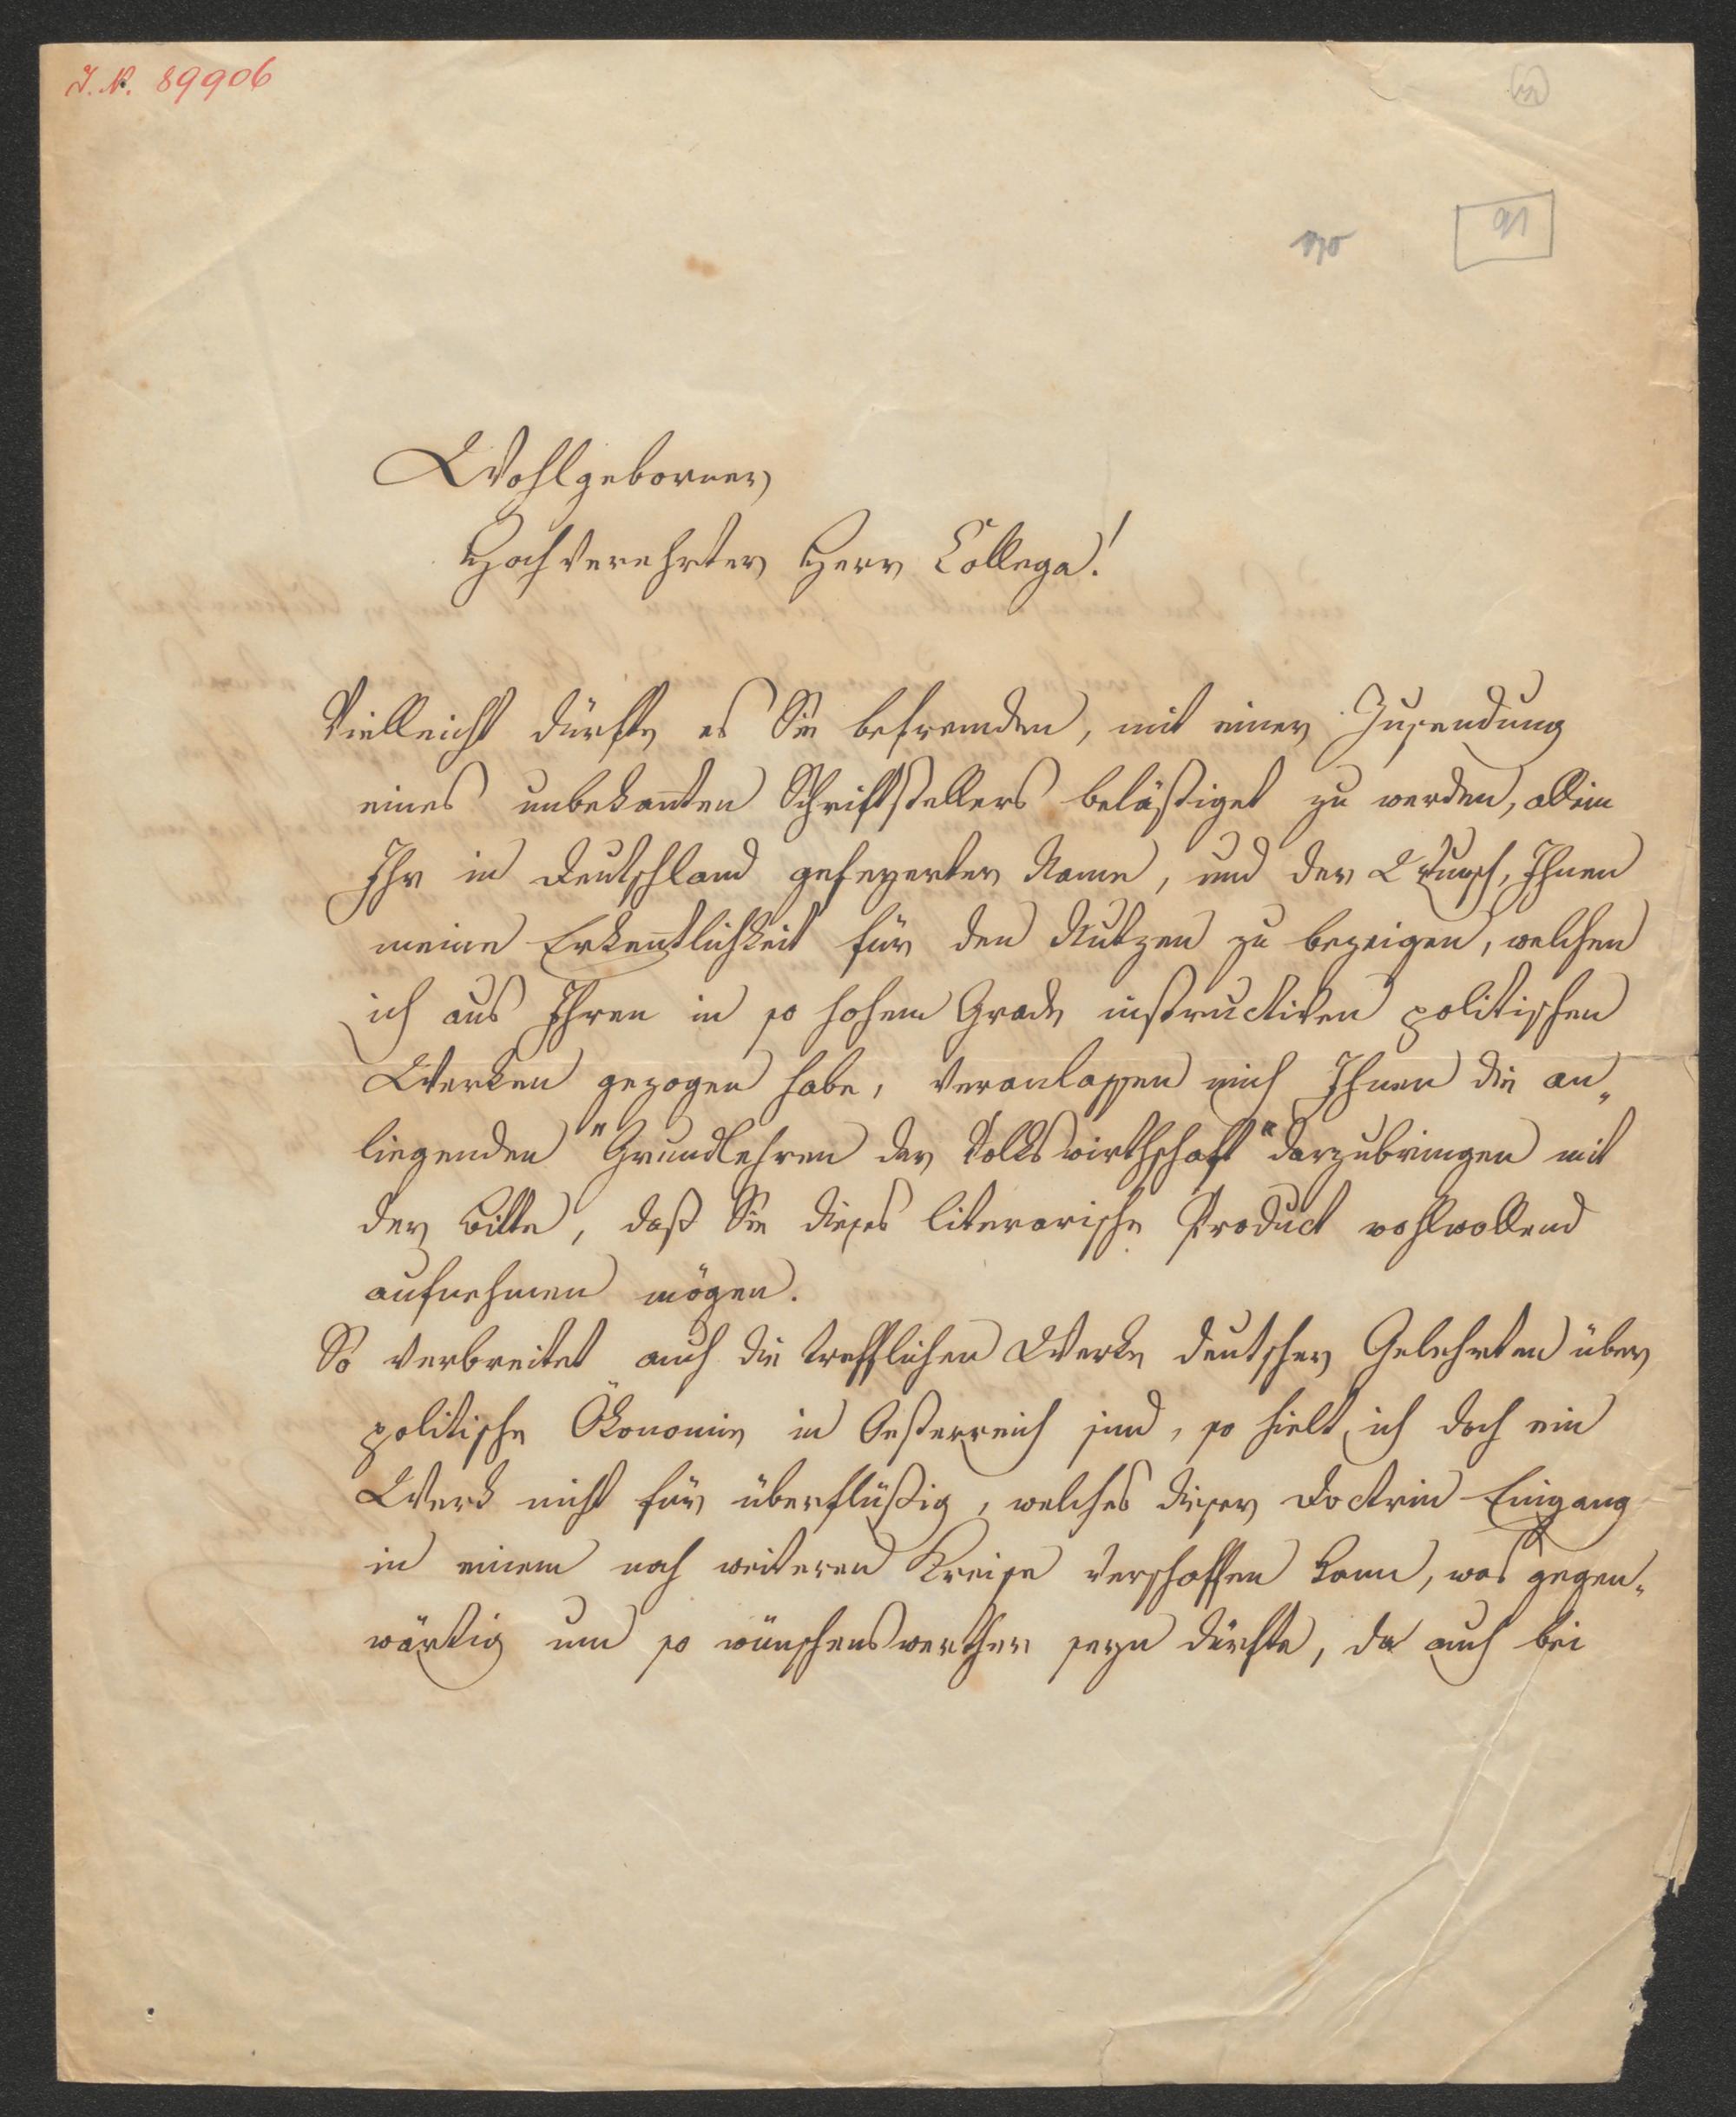 J. N. 89906
91
Wohlgeborner
Hochverehrter Herr Collega!
Vielleicht dürfte es Sie befremden, mit einer Zusendung
eines unbekan̄ten Schriftstellers belästiget zu werden, allein
Ihr in Deutschland gefeyerter Name, und der Wunsch, Ihnen
meine Erken̄tlichkeit für den Nutzen zu bezeigen, welchen
ich aus Ihren in so hohem Grade instructiven politischen
Werken gezogen habe, veranlassen mich Ihnen die an„
liegenden "Grundlehren der Volkswirthschaft" darzubringen mit
der Bitte, daß Sie dieses literarische Product wohlwollend
aufnehmen mögen.
So verbreitet auch die trefflichen Werke deutscher Gelehrten über
politische Ökonomie in Oesterreich sind, so hielt ich doch ein
Werk nicht für überflüßig, welches dieser Doctrin Eingang
in einem noch weiteren Kreise verschaffen kann, was gegen„
wärtig um so wünschenswerther seyn dürfte, da auch bei